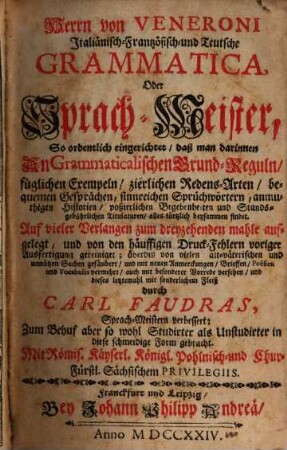 Herrn von VENERONI
Italiänisch-Frantzösisch- und Teutsche
GRAMMATICA,
Oder
Sprach-Meister,
So ordentlich eingerichtet / daß man darinnen
An Grammaticalischen Grund-Reguln /
füglichen Exempeln / zierlichen Redens-Arten / be-
quemen Gesprächen / sinnreichen Sprüchwörtern / anmu-
thigen Historien / poßirlichen Begebenheiten und Stands-
gebührlichen Titulaturen / alles säntzlich beysammen findet.
Auf vieler Verlangen zum dreyzehenden mahle auf-
gelegt / und von den häuffigen Druck-Fehlern voriger
Ausfertigung gereiniget; überdis von vielen alt-väterischen und
unnützen Sachen gesäubert / und mit neuen Anmerckungen / Brieffen / Poësien
und Vocabulis vermehrt / auch mit besonderer Vorrede versehen / und
dieses letztemahl mit sonderlichem Fleiß
durch
CARL FAUDRAS,
Sprach-Meistern verbessert;
Zum Behuf aber so wohl Studirter als Unstudirter in
diese schmeidige Form gebracht.
Mit Römis. Käyserl. Königl. Pohlnisch- und Chur-
Fürstl. Sächsischem PRIVILEGIIS.
Franckfurt und Leipzig /
Bey Johann Philipp Andreä /
Anno MDCCXXIV.